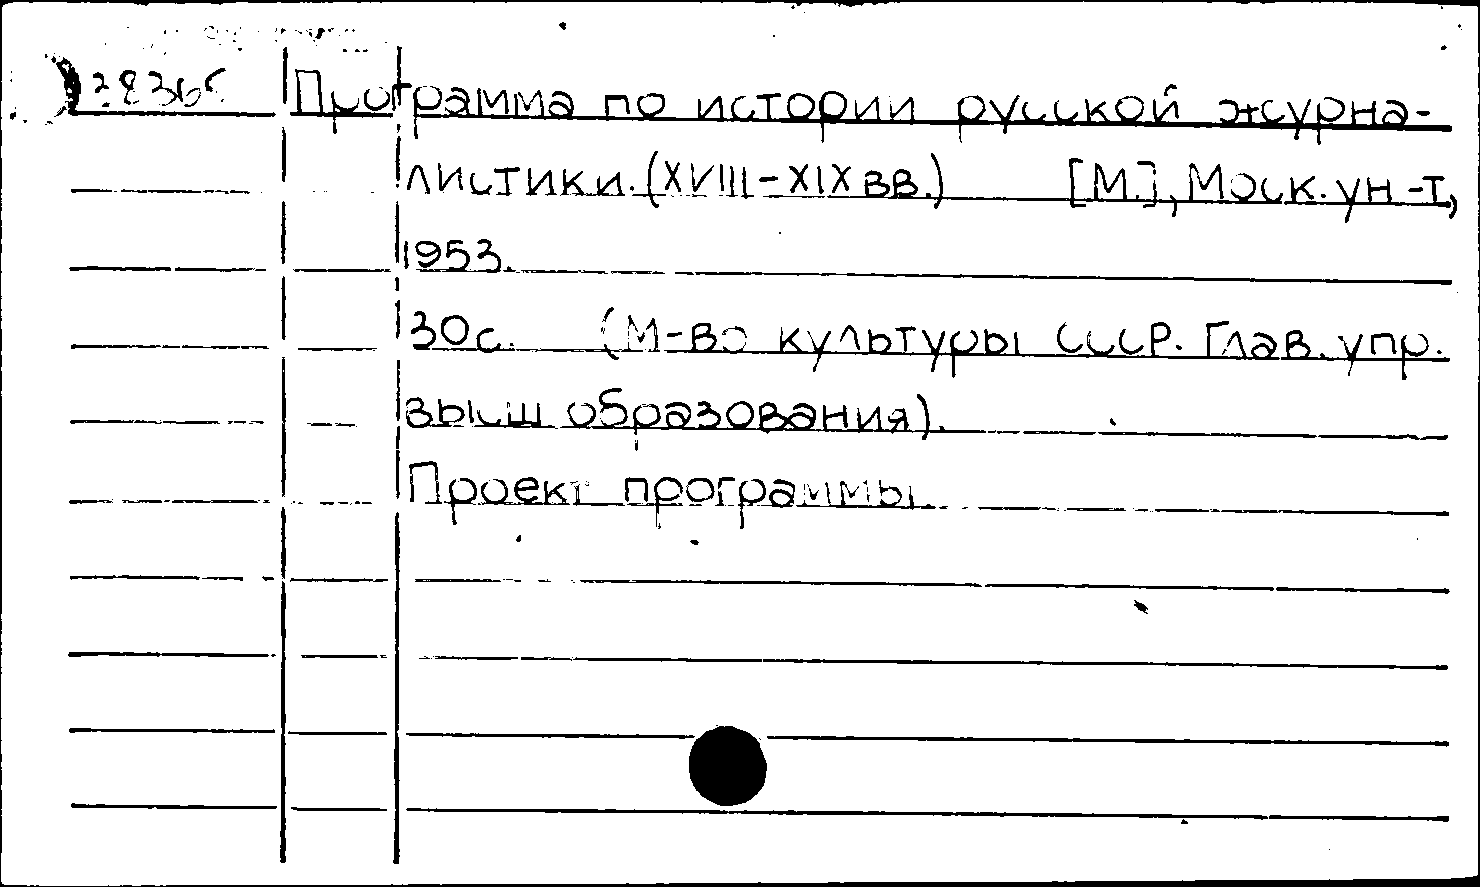 Программа по истории русской журна-
листики. (XVIII-XIX вв.) [М.], Моск. ун-т,
1953.
30с. (М-во культуры СССР. Глав. упр.
высш образования).
Проект программы.